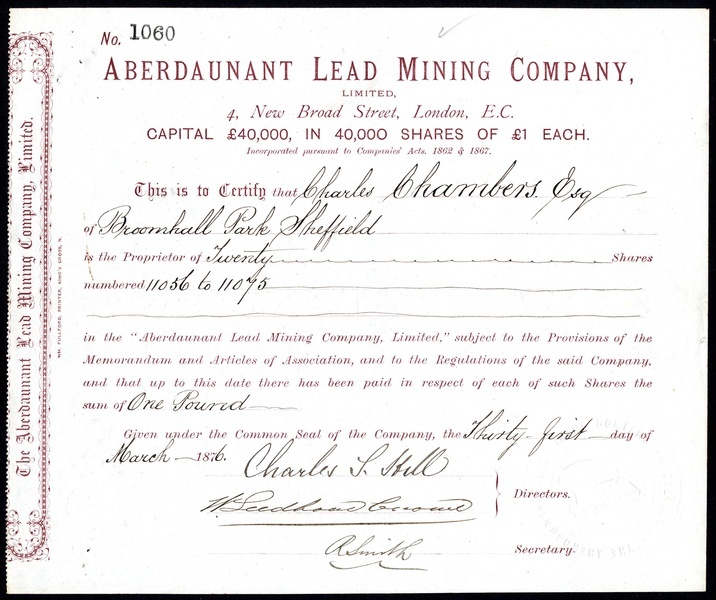 No. 1060
ABERDAUNANT LEAD MINING COMPANY,
LIMITED,
4, New Broad Street, London, E.C.
CAPITAL £40,000, IN 40,000 SHARES OF £1 EACH.
Incorporated pursuant to Companies' Acts. 1862 & 1867.
This is to Certify that Charles Chambers. Esq
of Broomhall Park Sheffield
is the Proprietor of Twenty Shares
numbered 11056 to 11075
in the "Aberdaunant Lead Mining Company, Limited," subject to the Provisions of the
Memorandum and Articles of Association, and to the Regulations of the said Company,
and that up to this date there has been paid in respect of each of such Shares the
sum of One Pound
Given under the Common Seal of the Company, the Thirty-first day of
March 1876.
Charles S. Hill
Directors.
R Smith
Secretary.
The Aberdaunant Lead Mining Company, Limited.
WM. FULLFORD, PRINTER, KING'S CROSS, N.